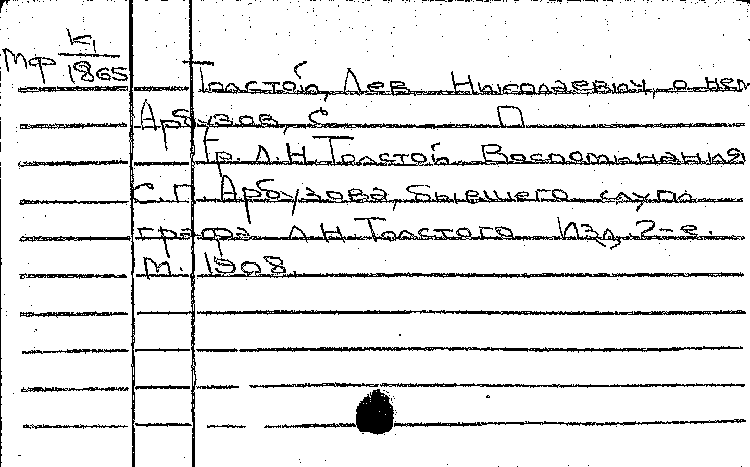 К1
Мф 1865
Толстой, Лев Николаевич, о нем
Арбузов, С. П
Гр. Л.Н. Толстой. Воспоминания
С.П. Арбузова, бывшего слуги
графа Л.Н. Толстого. Изд. 2-е.
М. 1908.